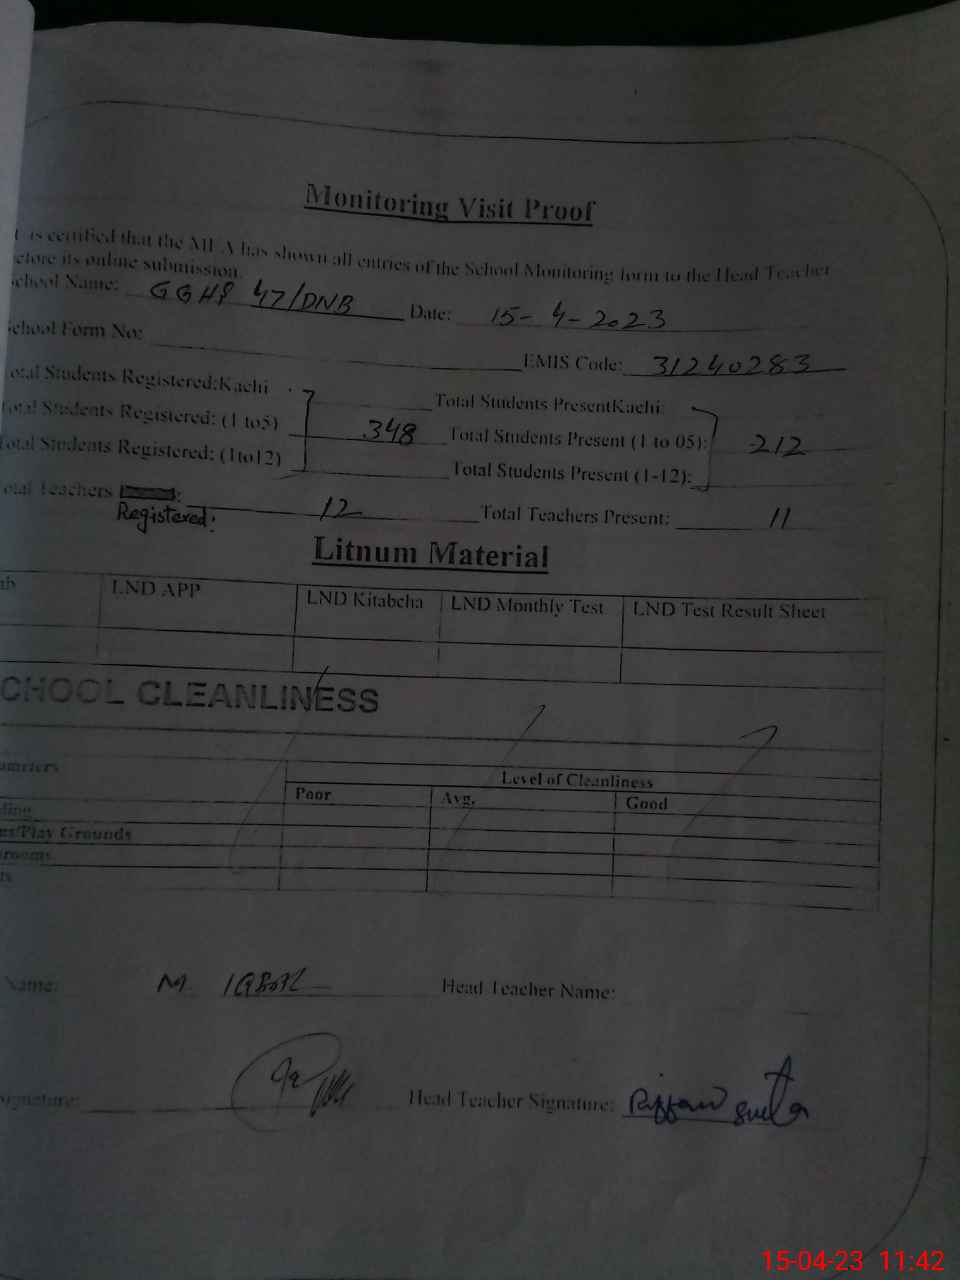 Monitoring Visit Proof
is certified that the MEA has shown all entries of the School Monitoring form to the Head Teacher
efore its online submission.
chool Name: GGHS 47/DNB Date: 15-4-2023
chool Form No: EMIS Code: 31240283
otal Students Registered:Kachi Total Students PresentKachi:
otal Students Registered: (1 to5) 348 Total Students Present (1 to 05): 212
otal Students Registered: (1to12) Total Students Present (1-12):
otal Teachers : 12 Total Teachers Present: 11
Registered:
Litnum Material
ab LND APP LND Kitabcha LND Monthly Test LND Test Result Sheet
CHOOL CLEANLINESS
ameters Level of Cleanliness
Poor Avg. Good
ding
es/Play Grounds
rooms
ts
Name: M. Head Teacher Name:
ignature: Head Teacher Signature:
15-04-23 11:42